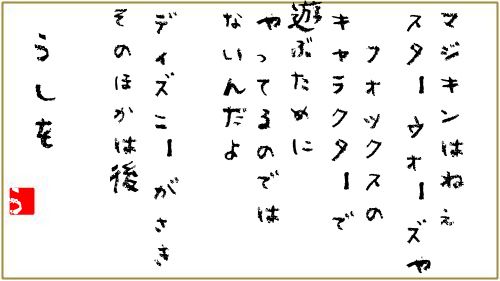 マジキンはねぇ
スターウォーズや
フォックスの
キャラクターで
遊ぶために
やってるのでは
ないんだよ
ディズニーがさき
そのほかは後
うしを
う